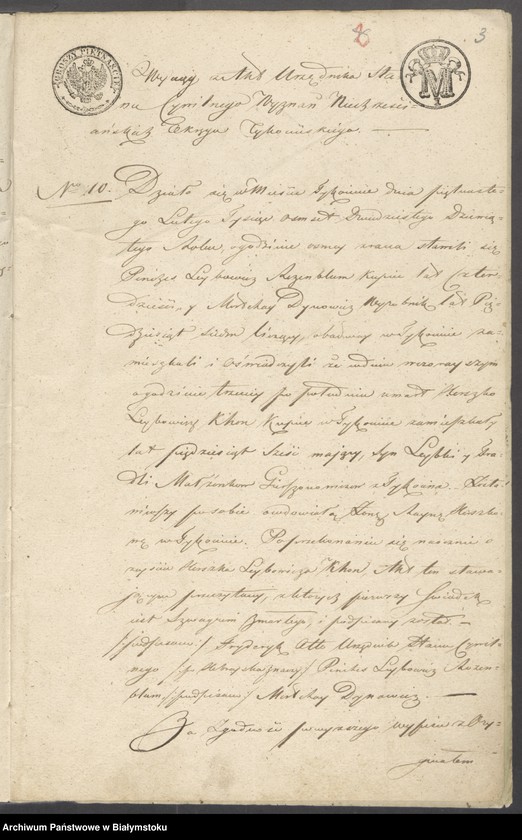 3
GROSZY PIĘTNAŚCIE
M
Wyciąg z Akt Urzędnika Sta
nu Cywilnego Wyznań Niechrześci-
ańskich Okręgu Tykocińskiego.
No 10. Działo się w Mieście Tykocinie dnia piętnaste-
go Lutego Tysiąc osmset Dwudziestego Dziewią-
tego Roku, o godzinie osmey zrana stawili się
Pinches Leybowicz Rozenblum Kupiec lat Czter-
dzieści, y Mordchay Dynowicz Wyrobnik lat Pię-
dziesiąt siedm liczący, obadway w Tykocinie za-
mieszkali i oświadczyli że w dniu wczorayszym
o godzinie trzeciey po południu umarł Herszko
Leybowicz Khon Kupiec w Tykocinie zamieszkały
lat pięćdziesiąt sześć maiący, syn Leybki y Fra-
dli Małżonków z Tykocina. Zosta-
wiwszy po sobie owdowiałą Żonę Herszko-
w Tykocinie. Po przekonaniu się naocznie o
zeyściu Herszka Leybowicza Khon, Akt ten stawa-
iącym przeczytany, z których pierwszy Świadek
iest Szwagrem zmarłego, i podpisany został. —
/podpisano/ Fryderyk Urzędnik Stanu Cywil-
nego / Pinches Leybowicz Rozen-
blum /podpisano/ Mordchay Dynowicz. —
Za zgodność powyższego wypisu z Ory-
ginałem
Archiwum Państwowe w Białymstoku